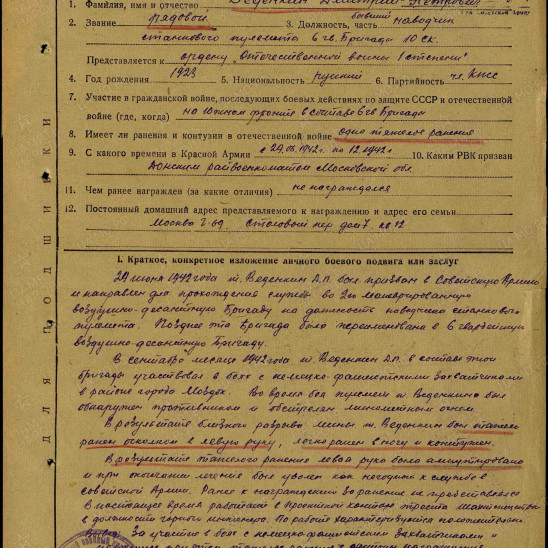 1. Фамилия, имя и отчество Веденкин Дмитрий Петрович
2. Звание рядовой 3. Должность, часть бывший наводчик
станкового пулемета 6 гв. Бригады 10 СК.
Представляется к ордену „Отечественной войны I степени"
4. Год рождения 1923 5. Национальность русский 6. Партийность чл. КПСС
7. Участие в гражданской войне, последующих боевых действиях по защите СССР и отечественной
войне (где, когда) на Южном фронте в составе 6 гв. Бригады
8. Имеет ли ранения и контузии в отечественной войне одно тяжелое ранение
9. С какого времени в Красной Армии с 29.06.1942г. по 12.1942г. 10. Каким РВК призван
райвоенкоматом Московской обл.
11. Чем ранее награжден (за какие отличия) не награждался
12. Постоянный домашний адрес представляемого к награждению и адрес его семьи
Москва Столовый пер дом 7 кв 12
I. Краткое, конкретное изложение личного боевого подвига или заслуг
29 июня 1942 года т. Веденкин Д.П. был призван в Советскую Армию
и направлен для прохождения службы во 2ю маневрированную
воздушно-десантную Бригаду на должность наводчика станкового
пулемета. Позднее эта Бригада была переименована в 6 гвардейскую
воздушно-десантную Бригаду.
В сентябре месяце 1942 года т. Веденкин Д.П. в составе этой
бригады участвовал в боях с немецко-фашистскими захватчиками
в районе города Моздок. Во время боя пулемет т. Веденкина был
обнаружен противником и обстрелян минометным огнем.
В результате близкого разрыва мины т. Веденкин был тяжело
ранен осколком в левую руку, легко ранен в ногу и контужен.
В результате тяжелого ранения левая рука была ампутирована
и при окончании лечения был уволен как негодный к службе в
Советской Армии. Ранее к награждению за ранение не представлялся
В настоящее время работает в Проектной конторе треста
в должности горного инженера. По работе характеризуется положительно.
За участие в боях с немецко-фашистскими захватчиками и
ДЛЯ ПОДШИВКИ